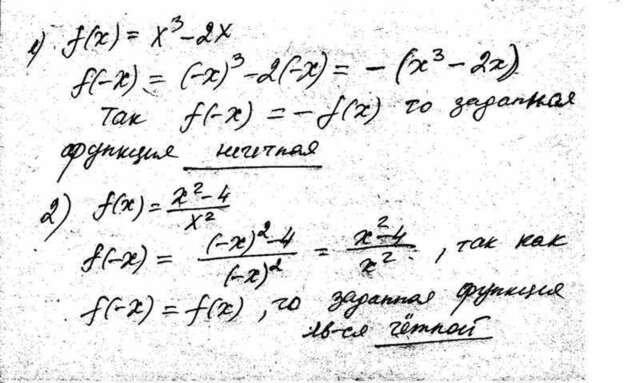 1) f(x) = x³-2x
f(-x) = (-x)³-2(-x) = - (x³-2x)
Так f(-x) = -f(x) то заданная
функция нечетная
2) f(x) = (x²-4)/x²
f(-x) = ((-x)²-4)/(-x)² = (x²-4)/x², так как
f(-x) = f(x), то заданная функция
яв-ся чётной